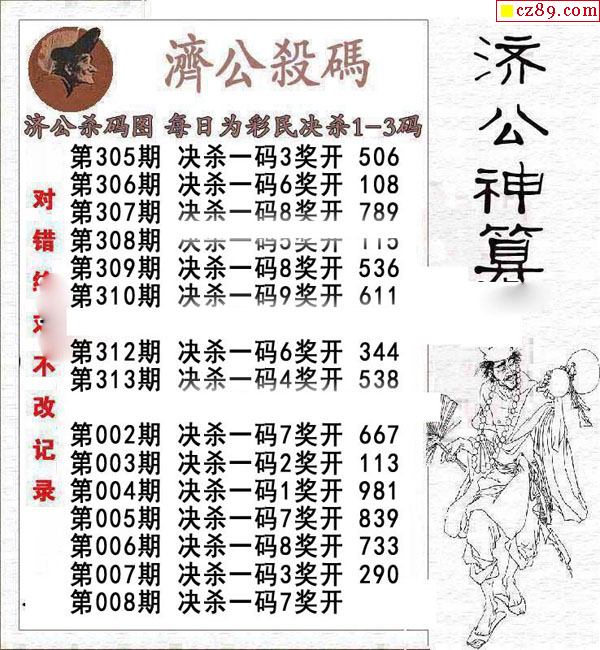 cz89.com
濟公殺碼
济公杀码图 每日为彩民决杀1-3码
第305期 决杀一码3奖开 506
第306期 决杀一码6奖开 108
第307期 决杀一码8奖开 789
第308期 决杀一码5奖开 115
第309期 决杀一码8奖开 536
第310期 决杀一码9奖开 611
第312期 决杀一码6奖开 344
第313期 决杀一码4奖开 538
第002期 决杀一码7奖开 667
第003期 决杀一码2奖开 113
第004期 决杀一码1奖开 981
第005期 决杀一码7奖开 839
第006期 决杀一码8奖开 733
第007期 决杀一码3奖开 290
第008期 决杀一码7奖开
对错 不改记录
济公神算